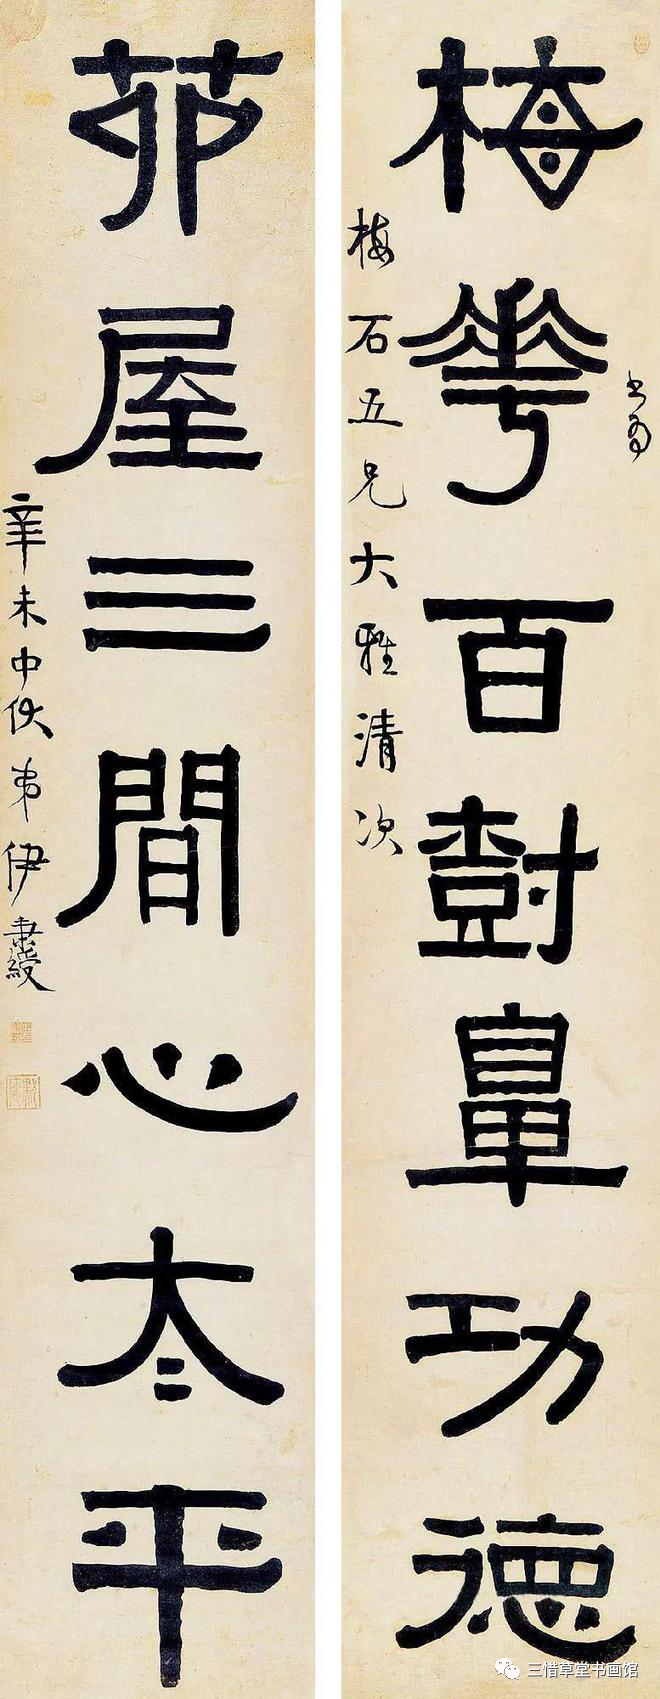 書為
梅華百樹鼻功德
梅石五兄大雅清次
茆屋三間心太平
辛未中伏弟伊秉綬
三惜草堂书画馆